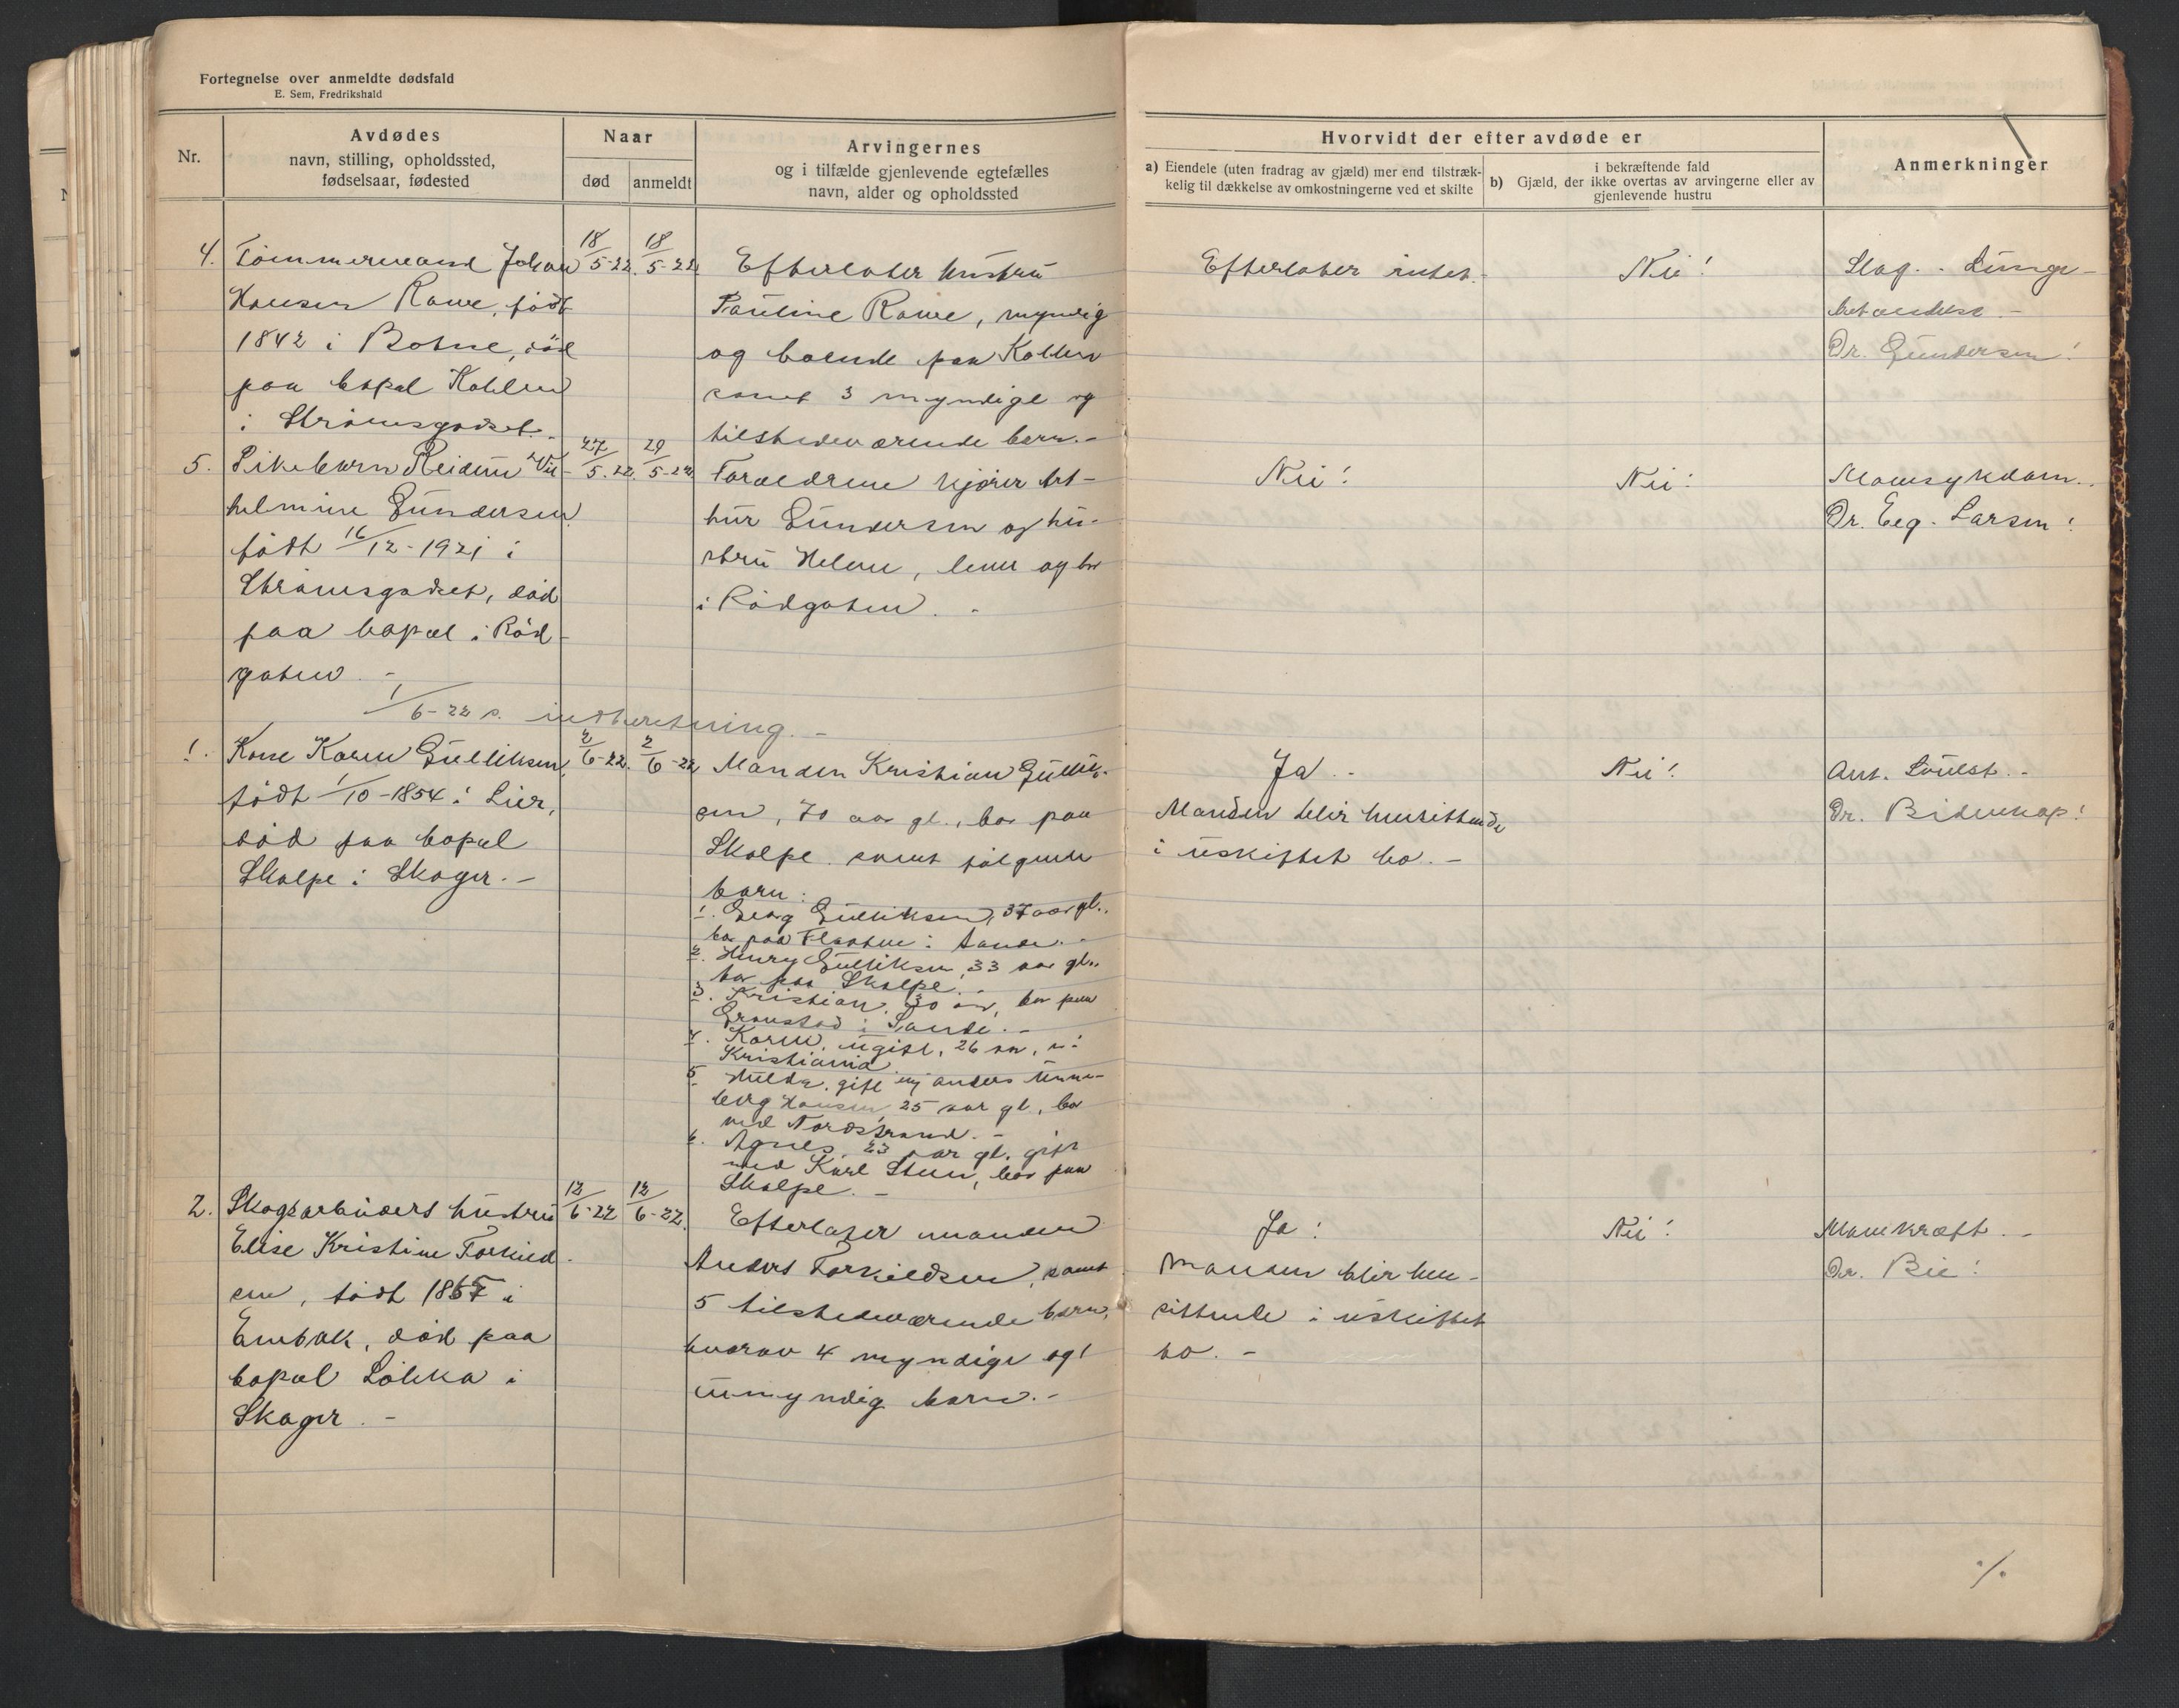 Fortegnelse over anmeldte dødsfald
E. Sem, Fredrikshald
Nr.
Avdødes
navn, stilling, opholdssted,
fødselsaar, fødested
Naar
død
anmeldt
Arvingernes
og i tilfælde gjenlevende egtefælles
navn, alder og opholdssted
Hvorvidt der efter avdøde er
a) Eiendele (uten fradrag av gjæld) mer end tilstræk-
kelig til dækkelse av omkostningerne ved et skifte
i bekræftende fald
b) Gjæld, der ikke overtas av arvingerne eller av
gjenlevende hustru
Anmerkninger
4. Tømmermand Johan
Hansen Rawe, født
1842 i Botne, død
paa bopæl Kollen
i Strømsgodset.
18/5-22. 18/5-22
Efterlater hustru
Pauline Rawe, myndig
og boende paa Kollen
samt 3 myndige og
tilstedeværende barn.-
Efterlater intet.
Nei!
Slag. - Lunge-
betændelse.-
Dr. Gundersen!
5. Pikebarn Reidun Vil-
helmine Gundersen
født 16/12-1921 i
Strømsgodset, død
paa bopæl i Rød-
gaten.-
27/5-22. 29/5-22
Forældrene kjører Art-
hur Gundersen og hu-
stru Helene, lever og bor
i Rødgaten.-
Nei!
Nei!
Mavesykdom.
Dr. Eeg-Larsen!
1/6-22 s. indberetning.-
1. Kone Karen Gulliksen,
født 1/10-1854 i Lier,
død paa bopæl
Skalpe i Skoger.-
2/6-22. 2/6-22
Manden Kristian Gullik-
sen, 70 aar gl., bor paa
Skalpe samt følgende
barn:
1. Georg Gulliksen, 37 aar gl.,
bor paa Flaatne i Sande.-
2. Henry Gulliksen, 33 aar gl.,
bor paa Skalpe.-
3. Kristian, 30 aar, bor paa
Grønstad i Sande.-
4. Karen, ugift, 26 aar, i
Kristiania
5. Hulda, gift m/ Anders
berg Hansen 25 aar gl., bor
ved Nordstrand.-
6. Agnes, 23 aar gl. gift
med Karl Steen, bor paa
Skalpe.-
Ja.-
Manden blir hensittende
i uskiftet bo.-
Nei!
Ant. Svulst.-
Dr. Bidenkap!
2. Skogsarbeiders hustru
Elise Kristine Torkild-
sen, født 1867 i
Enebak, død paa
bopæl Løkka i
Skoger.-
12/6-22 12/6-22.
Efterlater manden
Anders Torkildsen, samt
5 tilstedeværende barn,
hvorav 4 myndige og 1
umyndig barn.-
Ja!
Manden blir hen-
sittende i uskiftet
bo.-
Nei!
Mavekræft.-
Dr. Bie!
./.